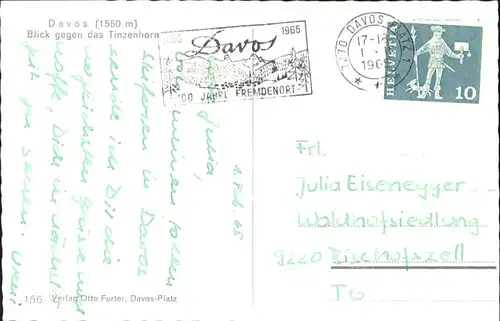 Davos (1560 m)
Blick gegen das Tinzenhorn
1965
Davos
100 JAHRE FREMDENORT
7270 DAVOS PLATZ 1
17-18
196
HELVETIA
10
1. Feb. 65
Julia,
von meinen tollen
Skiferien in Davos
sende ich Dir die
herzlichsten Grüsse und
hoffe, Dich
zu sehen.
Frl.
Julia Eisenegger
Waldhofsiedlung
9220 Bischofszell
TG
156 Verlag Otto Furter, Davos-Platz